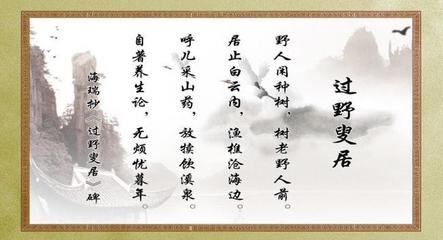 过野叟居
野人闲种树，树老野人前。
居止白云内，渔樵沧海边。
呼儿采山药，放犊饮溪泉。
自著养生论，无烦忧暮年。
海瑞抄《过野叟居》碑